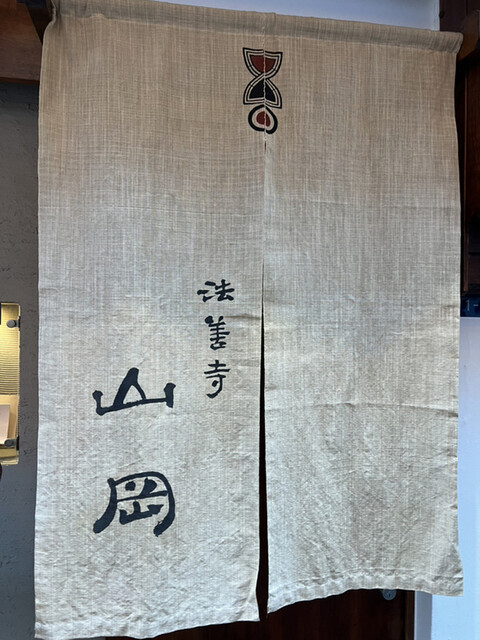 法善寺
山岡